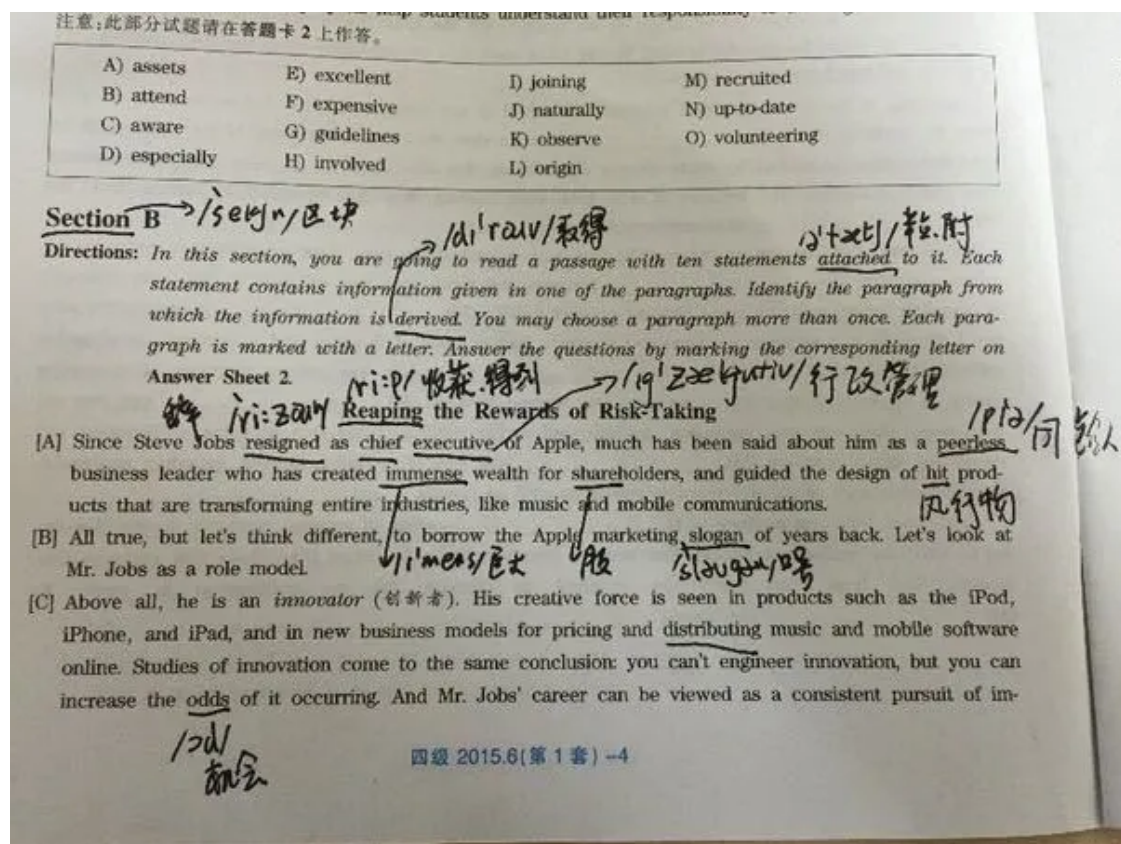 help students understand their responsibility
注意:此部分试题请在答题卡 2 上作答。
A) assets E) excellent I) joining M) recruited
B) attend F) expensive J) naturally N) up-to-date
C) aware G) guidelines K) observe O) volunteering
D) especially H) involved L) origin
Section B 区块
取得
粘.附
Directions: In this section, you are going to read a passage with ten statements attached to it. Each
statement contains information given in one of the paragraphs. Identify the paragraph from
which the information is derived. You may choose a paragraph more than once. Each para-
graph is marked with a letter. Answer the questions by marking the corresponding letter on
Answer Sheet 2.
/ri:p/ 收获.得到
行政管理
Reaping the Rewards of Risk-Taking
[A] Since Steve Jobs resigned as chief executive of Apple, much has been said about him as a peerless
business leader who has created immense wealth for shareholders, and guided the design of hit prod-
ucts that are transforming entire industries, like music and mobile communications.
风行物
[B] All true, but let's think different, to borrow the Apple marketing slogan of years back. Let's look at
Mr. Jobs as a role model.
巨大 股 口号
[C] Above all, he is an innovator (创新者). His creative force is seen in products such as the iPod,
iPhone, and iPad, and in new business models for pricing and distributing music and mobile software
online. Studies of innovation come to the same conclusion: you can't engineer innovation, but you can
increase the odds of it occurring. And Mr. Jobs' career can be viewed as a consistent pursuit of im-
/ɔd/
机会
四级 2015.6(第 1 套) -4